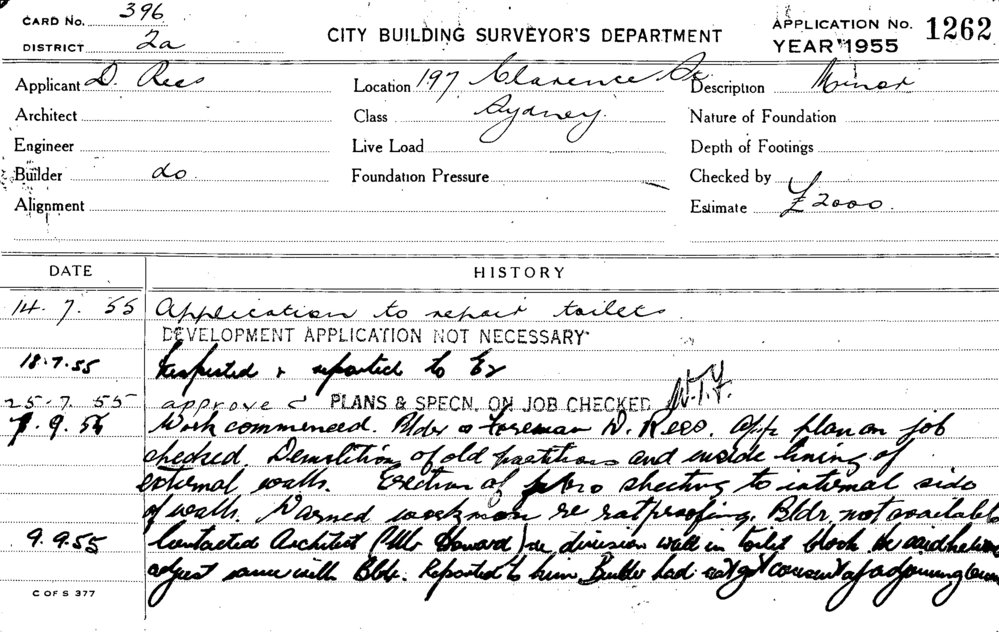 CARD No. 396
DISTRICT 2a
CITY BUILDING SURVEYOR'S DEPARTMENT
APPLICATION No. 1262
YEAR 1955
Applicant D. Rees
Location 197 Clarence St
Description Minor
Architect
Class Sydney
Nature of Foundation
Engineer
Live Load
Depth of Footings
Builder do
Foundation Pressure
Checked by
Alignment
Estimate £2000.
DATE HISTORY
14.7.55 Application to repair toilets.
DEVELOPMENT APPLICATION NOT NECESSARY
18.7.55 Inspected & reported to Ex
25.7.55 approved PLANS & SPECN. ON JOB CHECKED W.T.F.
9.55 Work commenced. Bldr & Foreman D. Rees. App plan on job
checked Demolition of old partitions and inside lining of
external walls. Erection of fibro sheeting to internal side
of walls. Warned workmen re ratproofing. Bldr not available
9.9.55 Contacted Architect (Mr Howard) re division wall in toilet block He said he
adjust same with Bldr. Reported to him Builder had not got consent of adjoining
C OF S 377